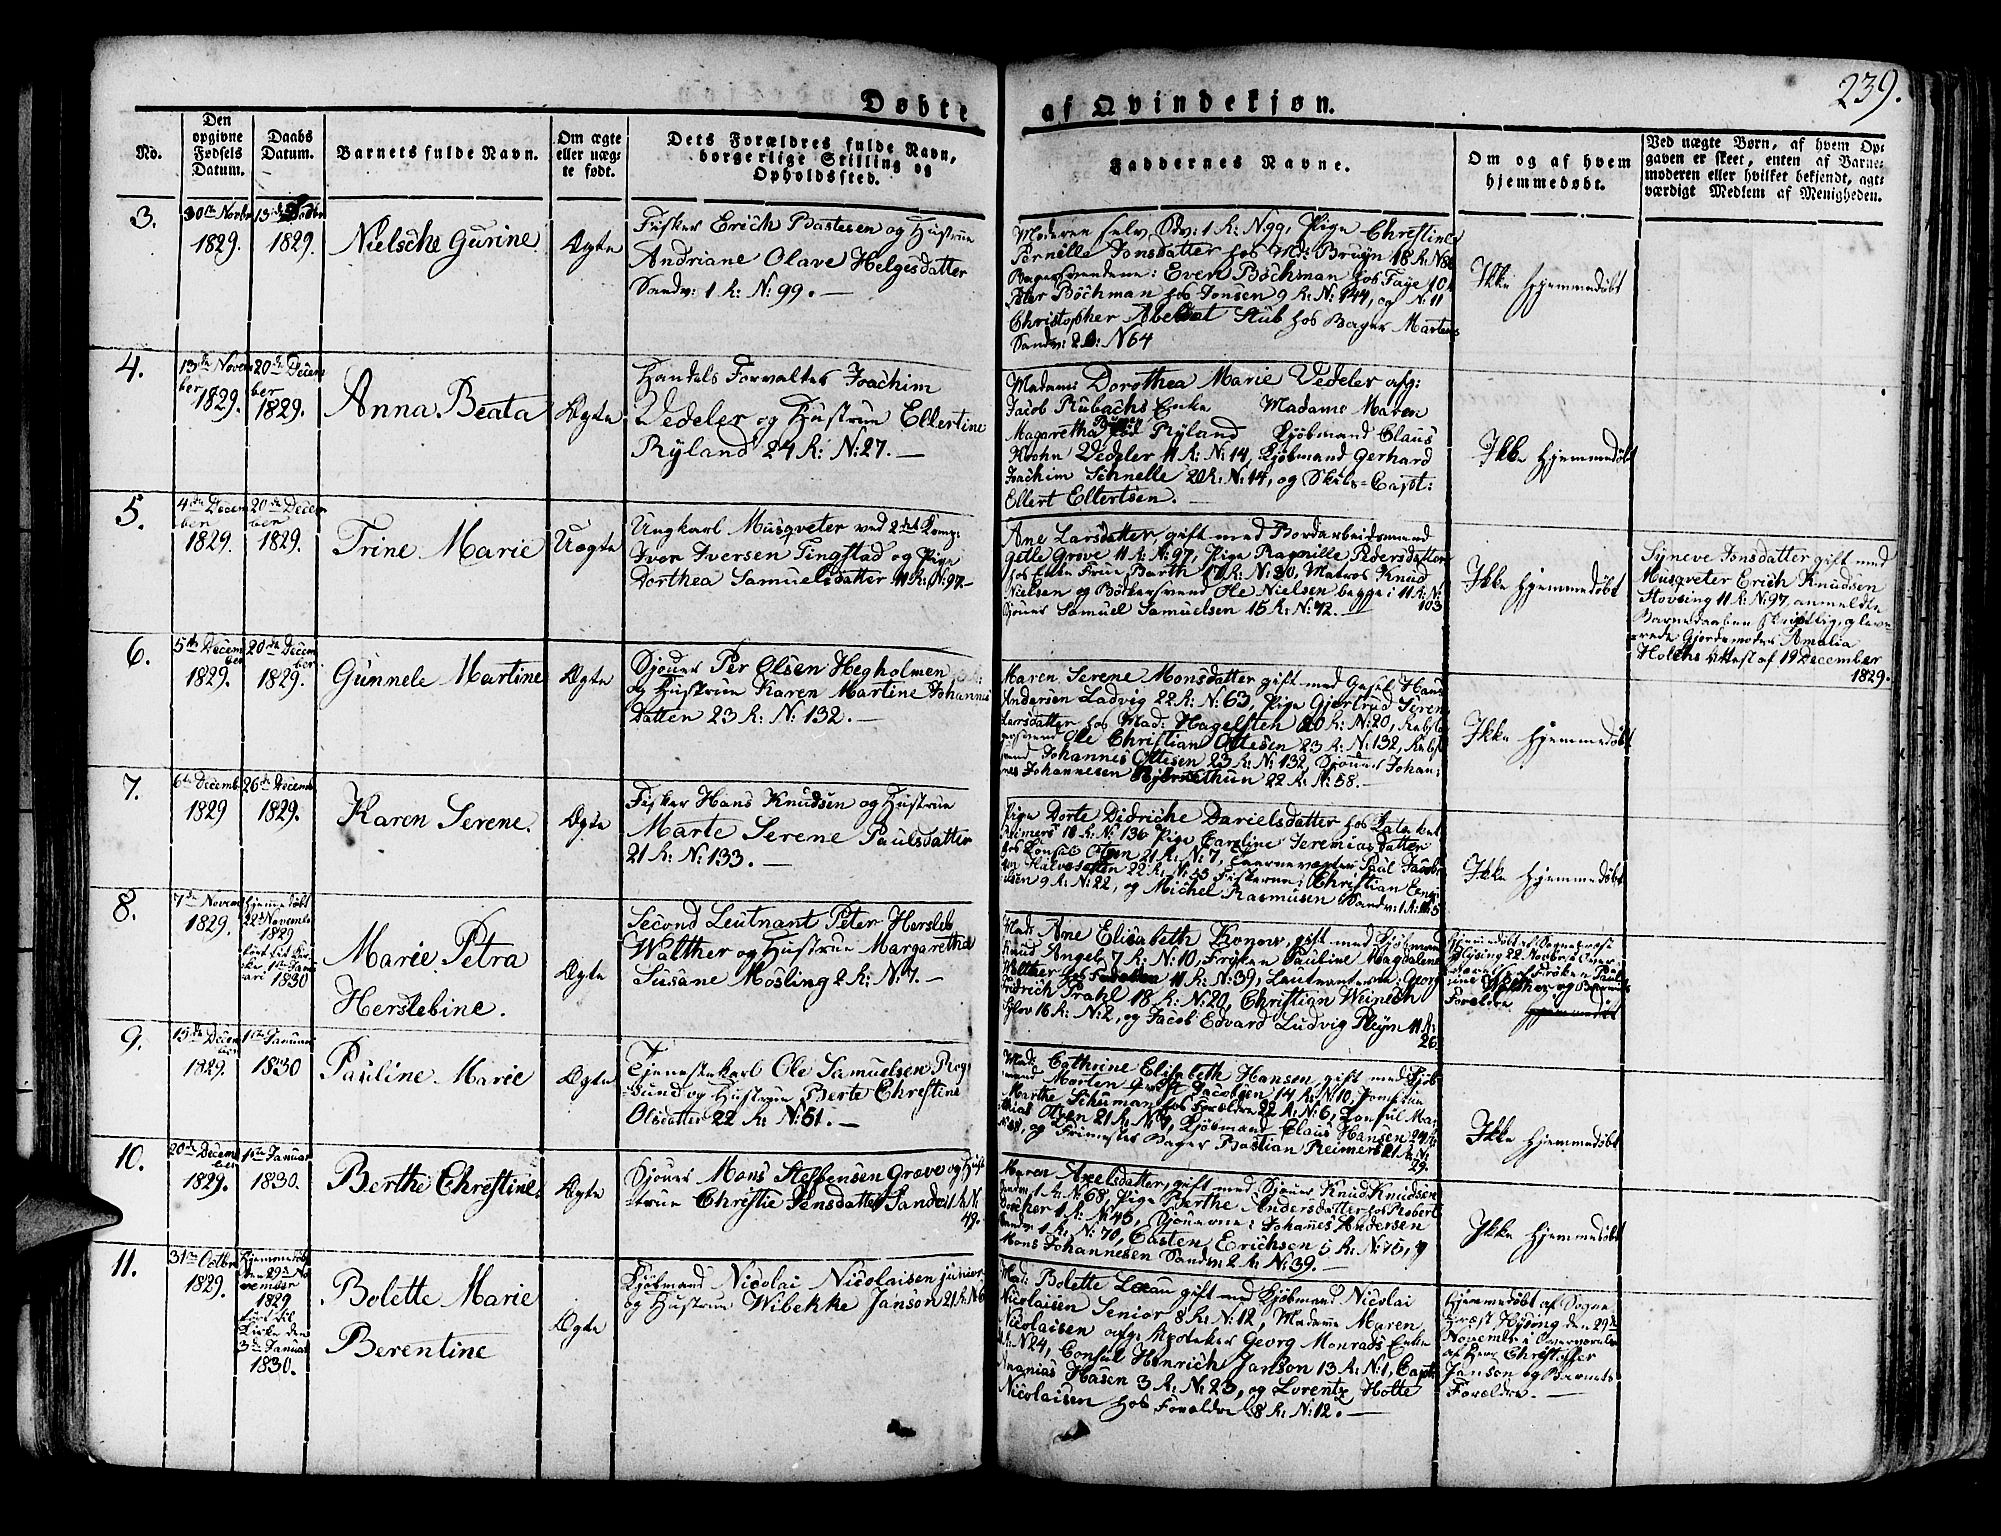 239.
Døbte af Qvindekjøn.
No.
Den opgivne Fødsels Datum.
Daabs Datum.
Barnets fulde Navn.
Om ægte eller uægte født.
Dets Forældres fulde Navn, borgerlige Stilling og Opholdssted.
Faddernes Navne.
Om og af hvem hjemmedøbt.
Ved uægte Børn, af hvem Opgaven er skeet, enten af Barnemoderen eller hvilket bekjendt, agtværdigt Medlem af Menigheden.
3.
1829.
1829.
Nielsche Gurine
Ægte
Fisker Erich Bastesen og Hustrue
Andriane Olave Helgesdatter
Sandv: 1 R: N: 99. —
Moderen selv Sdv: 1 R: N 99, Pige Christine
Pernille Jonsdatter hos Md: Bruyn 18 R: N 86
Bagersvendene: Even Böchman hos Faye 10
Peter Böchman hos Jonsen 9 R: N: 144, og N: 11
Christopher Stub hos Bager Martens
Sandv: 2 R: N 64
Ikke Hjemmedøbt
4.
13de Novem
ber
1829.
20de Decem
ber
1829.
Anna Beata
Ægte
Handels Forvalter Joachim
Vedeler og Hustrue Ellertine
Ryland 24 R: N: 27. —
Madame Dorothea Marie Vedeler afg:
Jacob Rubachs Enke Madame Maren
Magaretha Ryland Kjöbmand Claus
Krohn Vedeler 11 R: N: 14, Kjöbmand Gerhard
Joachim Schnelle 20 R: N: 14, og Skibs-Capt:
Ellert Eltertsen. —
Ikke Hjemmedøbt
5.
4de Decem
ber
1829.
20de Decem
ber
1829.
Trine Marie
Uægte
Ungkarl Musqveter ved 2det Comp:
Iver Iversen Tingstad og Pige
Dorthea Samuelsdatter 11 R: N: 97. —
Ane Larsdatter gift med Bordarbeidsmand
Getle Grove 11 R: N: 97, Pige Ragnille Pedersdatter
hos Enke Frue Barth 17 R: N: 30, Matros Knud
Nielsen og Bödkersvend Ole Nielsen begge i 11 R: N:
103
Sjouer Samuel Samuelsen 15 R: N: 72. —
Ikke Hjemmedøbt
Syneve Jonsdatter gift med
Musqveter Erich Knudsen
Stovsing 11 R: N: 97, anmeldte
Barnedaaben skriftlig, og leve
rede Gjordemoder Amalia
Holchs Attest af 19 December
1829.
6.
5te Decem
ber
1829.
20de Decem
ber
1829.
Gunnele Martine
Ægte
Sjouer Per Olsen Hegholmen
og Hustrue Karen Martine Johannes
datter 23 R: N: 132. —
Maren Serene Monsdatter gift med Gesel Hans
Andersen Ladvig 22 R: N: 63, Pige Gjertrud Seren
Larsdatter hos Mad: Hagelsten 20 R: N: 20, Rebsla
gersvend Ole Christian Ottesen 23 R: N: 132, Rebsl
Johannes Ottesen 23 R: N: 132 Sjouer Johan:
nes Johannesen 22 R: N: 58.
Ikke Hjemmedøbt
7.
6te Decemb
1829
26de Decemb
1829.
Karen Serene.
Ægte
Fisker Hans Knudsen og Hustrue
Marte Serene Paulsdatter
21 R: N: 133. —
Pige Dorte Didriche Danielsdatter hos
Reimers 18 R: N: 136 Pige Caroline Jeremiasdatter
hos Consul Otsen 21 R: N: 7, Taarnevægter Paul Jacob
sen 22 R: N: 53 Fiskerne: Christian
9 R: N: 22, og Michel Rasmusen Sandv: 1 R:
Ikke Hjemmedøbt
8.
7de Novem
1829.
Hjemedøbt
22de Novemb
1829
ført til Kir
ke 1ste Janu
ari 1830
Marie Petra
Herslebine.
Ægte
Second Leutnant Peter Hersleb
Walther og Hustrue Margaretha
Susane Mosling 2 R: N: 7. —
Mad: Ane Elisabeth Konow, gift med Kjöbmand
Knud Angel 7 R: N: 10, Fröken Pauline Magdalene
Walther 11 R: N: 39, Lautnanterne: Georg
Fridrich Prahl 18 R: N: 20, Christian Weinech
16 R: N: 2, og Jacob Edvard Ludvig Pleym 11 R:
26
Hjemmedøbt af Sognepræst
Hysing 22 Novbr: i Over
Fröken Pauli
ne Walther og Barnets
Forældre
9.
15de Decem
ber
1829.
1ste Januar
1830
Pauline Marie
Ægte
Tjenestekarl Ole Samuelsen
og Hustrue Berte Chrestine
Olsdatter 22 R: N: 51. —
Mad: Cathrine Elisabeth Hansen gift med Kjöb
mand Morten 14 R: N: 10: Jomfrue
Marthe Schuman hos Forældre 22 R: N: 6, Consul Ma
thias Otsen 21 R: N: 7, Kjöbmand Claus Hansen
og Frimester Bager Bastian Reimers 21 R: N:
29.
Ikke Hjemmedøbt
10.
20de Decem
ber
1829.
1ste Januar
1830.
Berthe Chrestine.
Ægte
Sjouer Mons Steffensen Græve og Hu
strue Christie Jensdatter Sandv: 1 R: N:
49.
Maren Axelsdatter, gift med Sjouer Knud Knudsen
Sandv: 1 R: N: 68, Pige Berthe Andersdatter hos Robert
1 R: N: 45, Sjouerne: Johanes Andersen
Sandv: 1 R: N: 70, Casten Erichsen 5 R: N: 75, og
Mons Johannesen Sandv: 2 R: N: 39. —
Ikke Hjemmedøbt
11.
31te Octbr
1829.
Hjemmedøbt
den 29de No
vember
1829
ført til
Kirke den
3de Januar
1830.
Bolette Marie
Berentine
Ægte
Kjöbmand Nicolai Nicolaisen junior
og Hustrue Wibekke Janson 21 R: N: 6
Mad: Bolette gift med Kjöbmand Nicolai
Nicolaisen Senior 8 R: N: 12, Madame Maren
Nicolaisen afg: Apoteker Georg Monrads Enke
R: N 24, Consul Henrich Janson 13 R: N: 1, Capt:
Ananias Hasen 3 R: N: 23, og Lorentz Holte
Nicolaisen hos Forældre 8 R: N: 12. —
Hjemmedøbt af Sogne
Præst Hysing den 29de
Novembr: i Overværelse
af Herr Christoffer
Janson og Barnets
Forældre. —